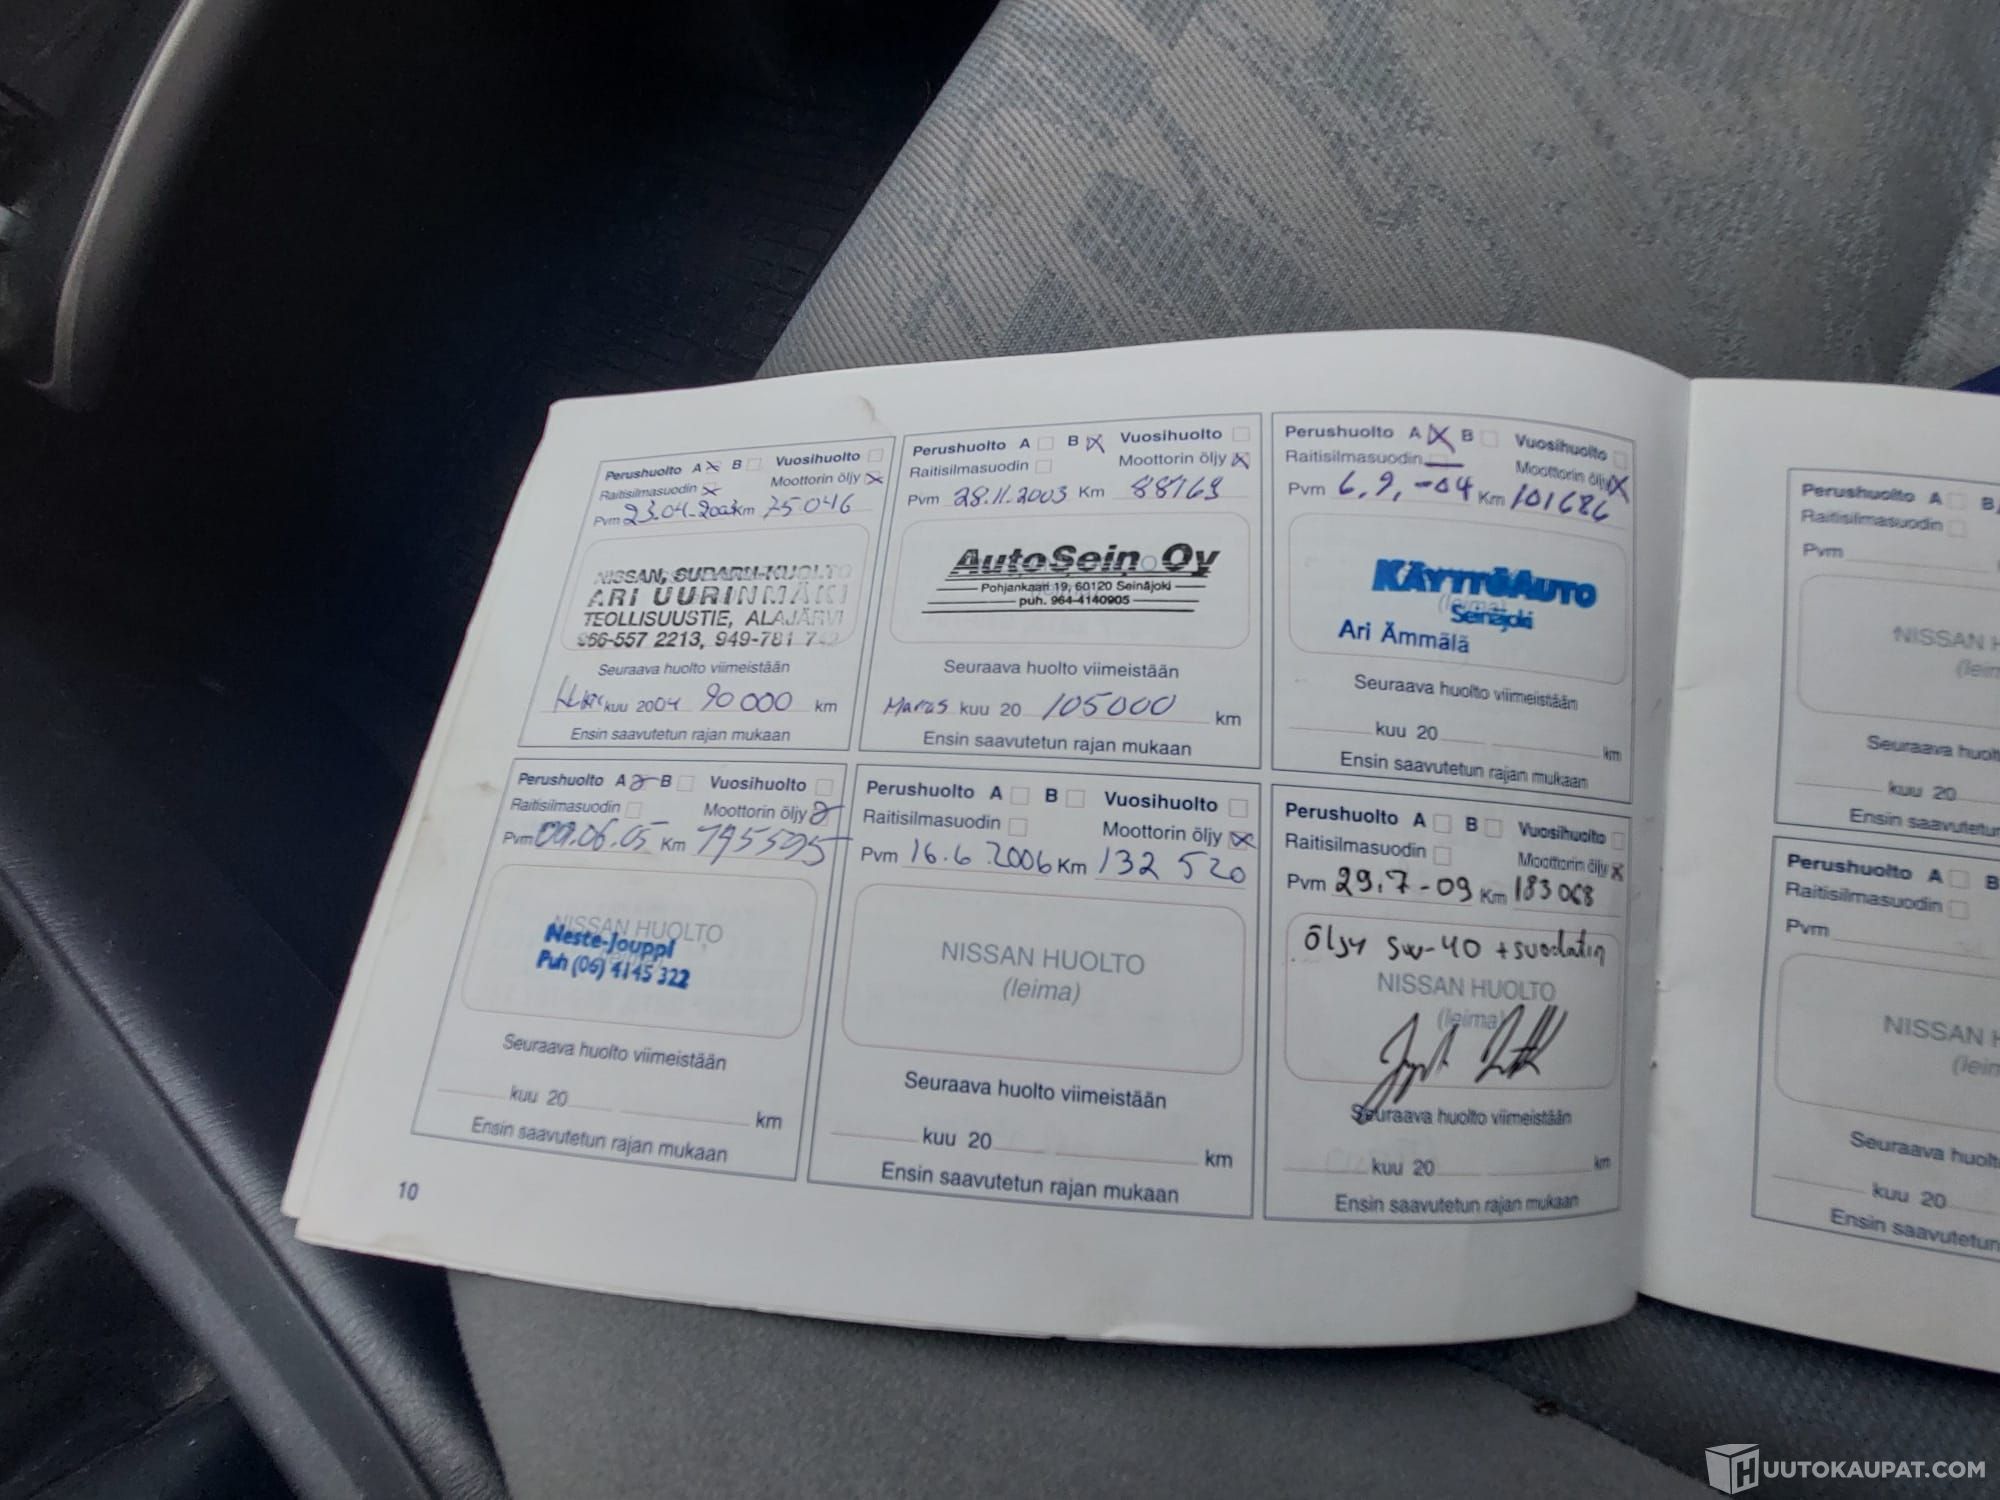 Perushuolto A B Vuosihuolto
Raitisilmasuodin Moottorin öljy
Pvm 23.04.2003 Km 75046
NISSAN, SUBARU-HUOLTO
ARI UURINMÄKI
TEOLLISUUSTIE, ALAJÄRVI
966-557 2213, 949-781
Seuraava huolto viimeistään
kuu 2004 90000 km
Ensin saavutetun rajan mukaan
Perushuolto A B Vuosihuolto
Raitisilmasuodin Moottorin öljy
Pvm 28.11.2003 Km 88769
AutoSeino Oy
Pohjankaari 19, 60120 Seinäjoki
puh. 964-4140905
Seuraava huolto viimeistään
Marras kuu 20 105000 km
Ensin saavutetun rajan mukaan
Perushuolto A B Vuosihuolto
Raitisilmasuodin Moottorin öljy
Pvm 6,9,-04 Km 101686
KÄYTTÖAUTO
(leima)
Seinäjoki
Ari Ämmälä
Seuraava huolto viimeistään
kuu 20 km
Ensin saavutetun rajan mukaan
Perushuolto A B Vuosihuolto
Raitisilmasuodin Moottorin öljy
Pvm 09.06.05 Km
NISSAN HUOLTO
Neste-Jouppi
Puh (06) 4145 322
Seuraava huolto viimeistään
kuu 20 km
Ensin saavutetun rajan mukaan
Perushuolto A B Vuosihuolto
Raitisilmasuodin Moottorin öljy
Pvm 16.6.2006 Km 132 520
NISSAN HUOLTO
(leima)
Seuraava huolto viimeistään
kuu 20 km
Ensin saavutetun rajan mukaan
Perushuolto A B Vuosihuolto
Raitisilmasuodin Moottorin öljy
Pvm 29.7-09 Km 183068
Öljy 5w-40 + suodatin
NISSAN HUOLTO
(leima)
Seuraava huolto viimeistään
kuu 20 km
Ensin saavutetun rajan mukaan
10
Perushuolto A B
Raitisilmasuodin
Pvm
NISSAN H
(leim
Seuraava huolt
kuu 20
Ensin saavutetun
Perushuolto A B
Raitisilmasuodin
Pvm
NISSAN H
(leim
Seuraava huolt
kuu 20
Ensin saavutetun
HUUTOKAUPAT.COM